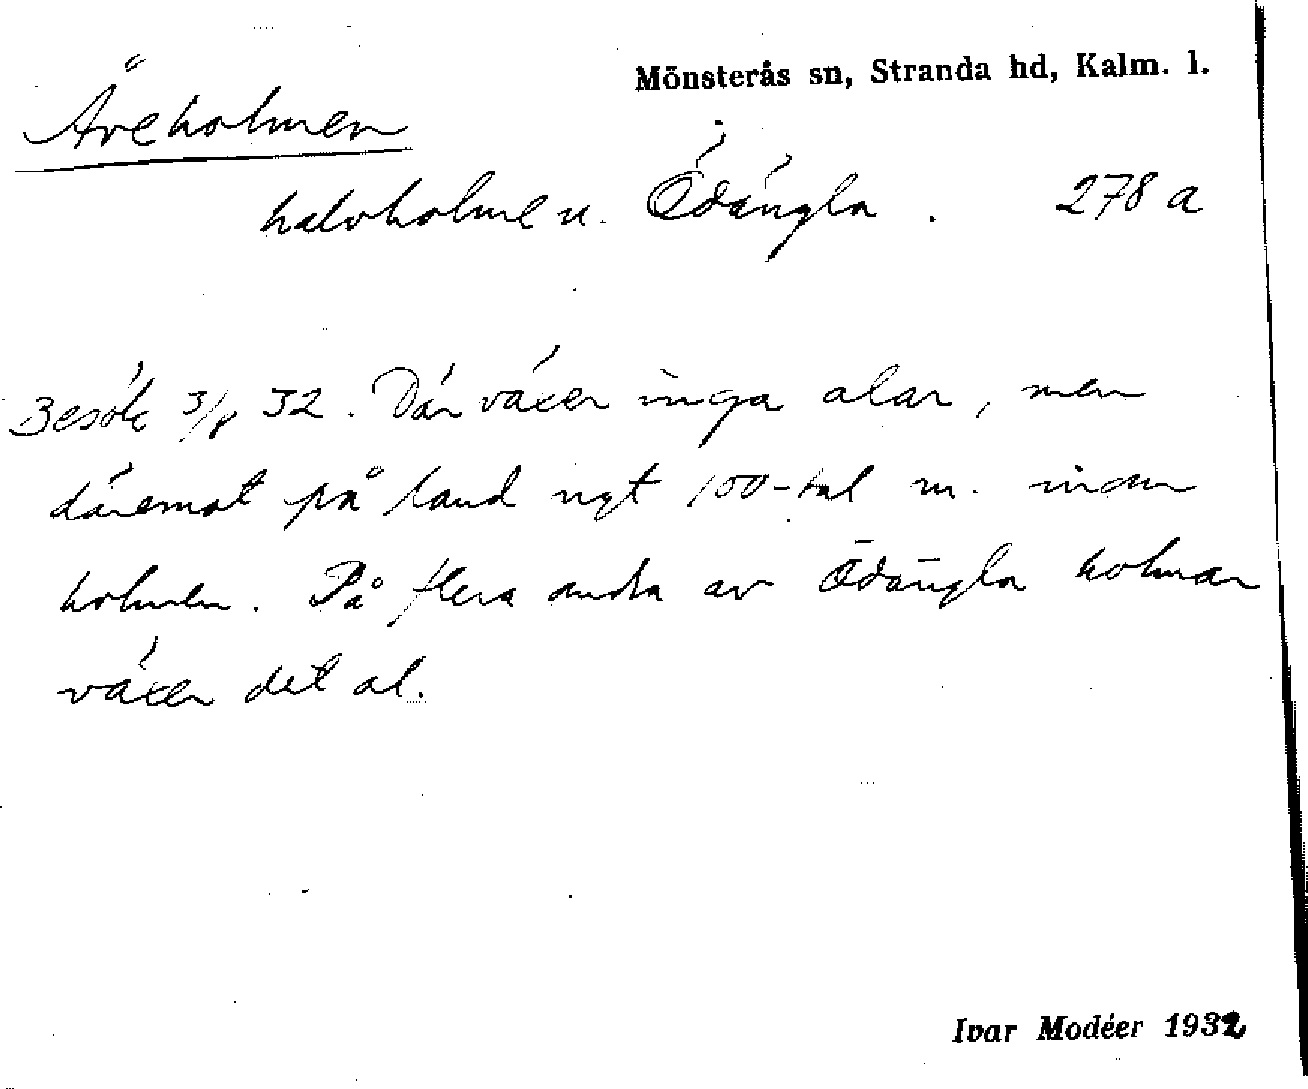 Mönsterås sn, Stranda hd, Kalm. l.
Åreholmen
halvholme u. Ödängla. 278 a
Besök 3/8 32. Där växer inga alar, men
däremot på land ngt 100-tal m. innan
holmen. På flera andra av Ödängla holmar
växer det al.
Ivar Modéer 1932